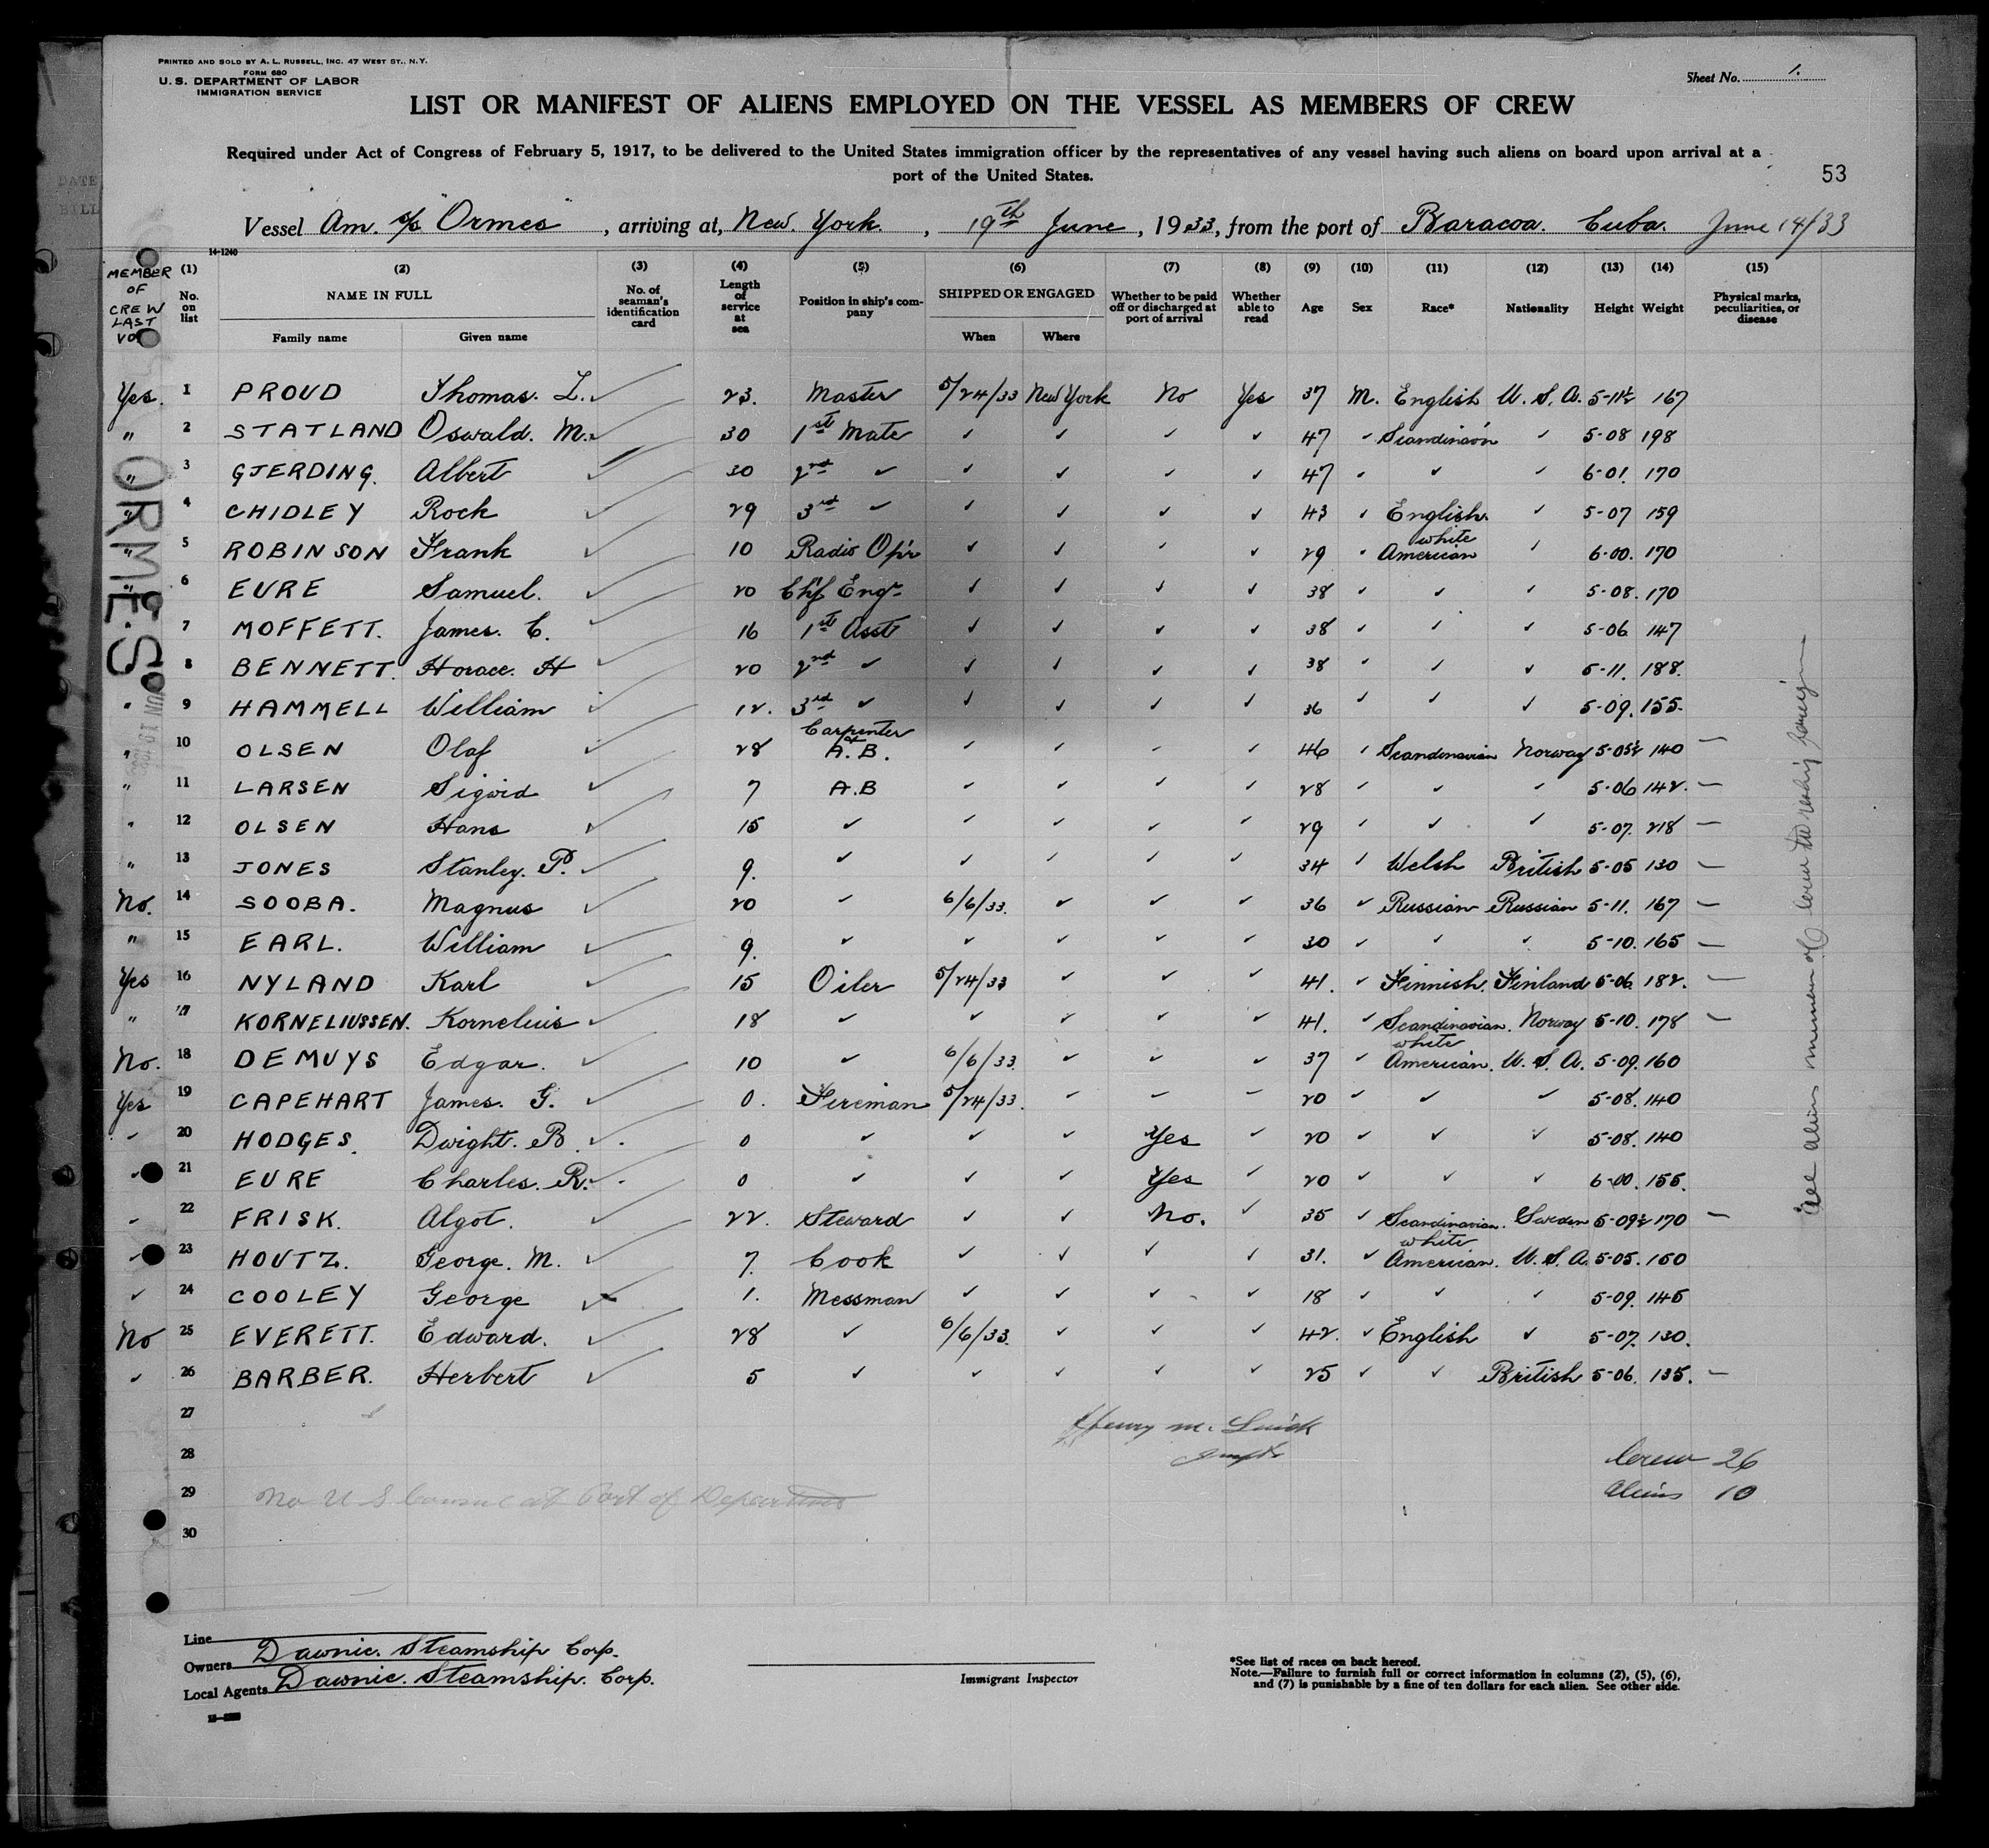 PRINTED AND SOLD BY A. L. RUSSELL, INC. 47 WEST ST., N.Y.
FORM 680
U. S. DEPARTMENT OF LABOR
IMMIGRATION SERVICE
Sheet No. 1.
LIST OR MANIFEST OF ALIENS EMPLOYED ON THE VESSEL AS MEMBERS OF CREW
Required under Act of Congress of February 5, 1917, to be delivered to the United States immigration officer by the representatives of any vessel having such aliens on board upon arrival at a
port of the United States.
53
DATE
BILL
Vessel Am. s/s "Ormes", arriving at, New York., 19th June, 1933, from the port of Baracoa. Cuba. June 14/33
14-1240
MEMBER OF CREW LAST VOY (1) No. on list (2) NAME IN FULL Family name Given name (3) No. of seaman's identification card (4) Length of service at sea (5) Position in ship's company (6) SHIPPED OR ENGAGED When Where (7) Whether to be paid off or discharged at port of arrival (8) Whether able to read (9) Age (10) Sex (11) Race* (12) Nationality (13) Height (14) Weight (15) Physical marks, peculiarities, or disease
Yes. 1 PROUD Thomas. L. ✓ 23. Master 5/24/33 New York No Yes 37 M. English U. S. A. 5-11½ 167
" 2 STATLAND Oswald. M. ✓ 30 1st Mate ✓ ✓ ✓ ✓ 47 ✓ Scandinav'n ✓ 5-08 198
" 3 GJERDING. Albert ✓ 30 2nd ✓ ✓ ✓ ✓ ✓ 47 ✓ ✓ ✓ 6-01. 170
" 4 CHIDLEY Rock ✓ 29 3rd ✓ ✓ ✓ ✓ ✓ 43 ✓ English. ✓ 5-07 159
" 5 ROBINSON Frank ✓ 10 Radio Op'r ✓ ✓ ✓ ✓ 29 ✓ white American ✓ 6-00. 170
" 6 EURE Samuel. ✓ 20 Ch'f Engr ✓ ✓ ✓ ✓ 38 ✓ ✓ ✓ 5-08. 170
7 MOFFETT. James. C. ✓ 16 1st Asst ✓ ✓ ✓ ✓ 38 ✓ ✓ ✓ 5-06 147
8 BENNETT. Horace. H ✓ 20 2nd ✓ ✓ ✓ ✓ ✓ 38 ✓ ✓ ✓ 5-11. 188.
" 9 HAMMELL William ✓ 12. 3rd ✓ ✓ ✓ ✓ ✓ 36 ✓ ✓ ✓ 5-09. 155.
" 10 OLSEN Olaf ✓ 28 Carpenter & A. B. ✓ ✓ ✓ ✓ 46 ✓ Scandinavian Norway 5-05½ 140 —
" 11 LARSEN Sigvid ✓ 7 A.B ✓ ✓ ✓ ✓ 28 ✓ ✓ ✓ 5-06 142. —
" 12 OLSEN Hans ✓ 15 ✓ ✓ ✓ ✓ ✓ 29 ✓ ✓ ✓ 5-07. 218 —
" 13 JONES Stanley. P. ✓ 9. ✓ ✓ ✓ ✓ ✓ 34 ✓ Welsh British 5-05 130 —
No. 14 SOOBA. Magnus ✓ 20 ✓ 6/6/33. ✓ ✓ ✓ 36 ✓ Russian Russian 5-11. 167 —
" 15 EARL. William ✓ 9. ✓ ✓ ✓ ✓ ✓ 30 ✓ ✓ ✓ 5-10. 165 —
Yes 16 NYLAND Karl ✓ 15 Oiler 5/24/33 ✓ ✓ ✓ 41. ✓ Finnish. Finland 5-06. 182. —
" 17 KORNELIUSSEN. Kornelius ✓ 18 ✓ ✓ ✓ ✓ ✓ 41. ✓ Scandinavian. Norway 5-10. 178 —
No. 18 DEMUYS Edgar. ✓ 10 ✓ 6/6/33. ✓ ✓ ✓ 37 ✓ white American. U. S. A. 5-09. 160
Yes 19 CAPEHART James. G. ✓ 0. Fireman 5/24/33. ✓ ✓ ✓ 20 ✓ ✓ ✓ 5-08. 140
✓ 20 HODGES. Dwight. B. ✓ 0 ✓ ✓ ✓ Yes ✓ 20 ✓ ✓ ✓ 5-08. 140
✓ 21 EURE Charles. R. ✓ 0 ✓ ✓ ✓ Yes ✓ 20 ✓ ✓ ✓ 6-00. 155.
✓ 22 FRISK. Algot. ✓ 22. Steward ✓ ✓ No. ✓ 35 ✓ Scandinavian. Sweden 5-09½ 170 —
✓ 23 HOUTZ. George. M. ✓ 7. Cook ✓ ✓ ✓ ✓ 31. ✓ white American. U. S. A. 5-05. 150
✓ 24 COOLEY George ✓ 1. Messman ✓ ✓ ✓ ✓ 18 ✓ ✓ ✓ 5-09. 145
No 25 EVERETT. Edward. ✓ 28 ✓ 6/6/33. ✓ ✓ ✓ 42. ✓ English ✓ 5-07. 130.
✓ 26 BARBER. Herbert ✓ 5 ✓ ✓ ✓ ✓ ✓ 25 ✓ ✓ British 5-06. 135. —
27
28
29
30
ORMES
Henry M.
Crew 26
Aliens 10
No U S Consul at Port of Departure
Line
Owners Dawnic. Steamship. Corp.
Local Agents Dawnic. Steamship. Corp.
Immigrant Inspector
*See list of races on back hereof.
Note.—Failure to furnish full or correct information in columns (2), (5), (6),
and (7) is punishable by a fine of ten dollars for each alien. See other side.